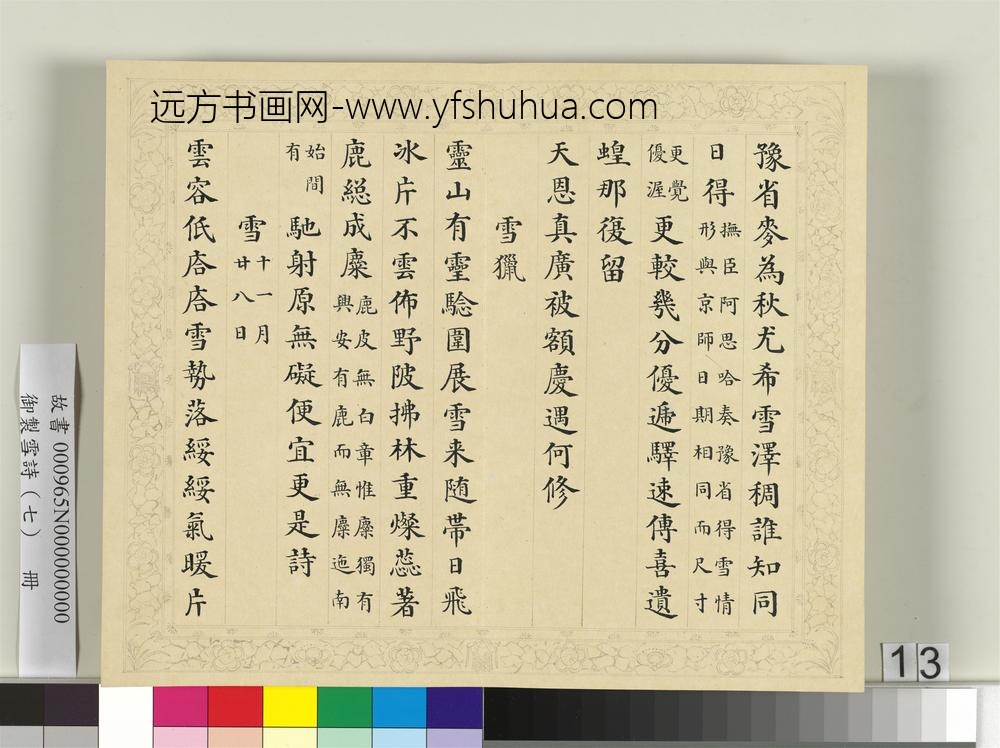 远方书画网-www.yfshuhua.com
豫省麥為秋尤希雪澤稠誰知同
日得撫臣阿思哈奏豫省得雪情
形與京師日期相同而尺寸
更覺
優渥更較幾分優遞驛速傳喜遺
蝗那復留
天恩真廣被額慶遇何修
雪獵
靈山有靈驗圍展雪来随帶日飛
冰片不雲佈野陂拂林重燦蕊著
鹿総成麋鹿皮無白章惟麋獨有
興安有鹿而無麋迤南
始間
有馳射原無礙便宜更是詩
雪十一月
廿八日
雲容低㕎㕎雪勢落綏綏氣暖片
故書 000965N000000000
御製雪詩（七） 冊
13